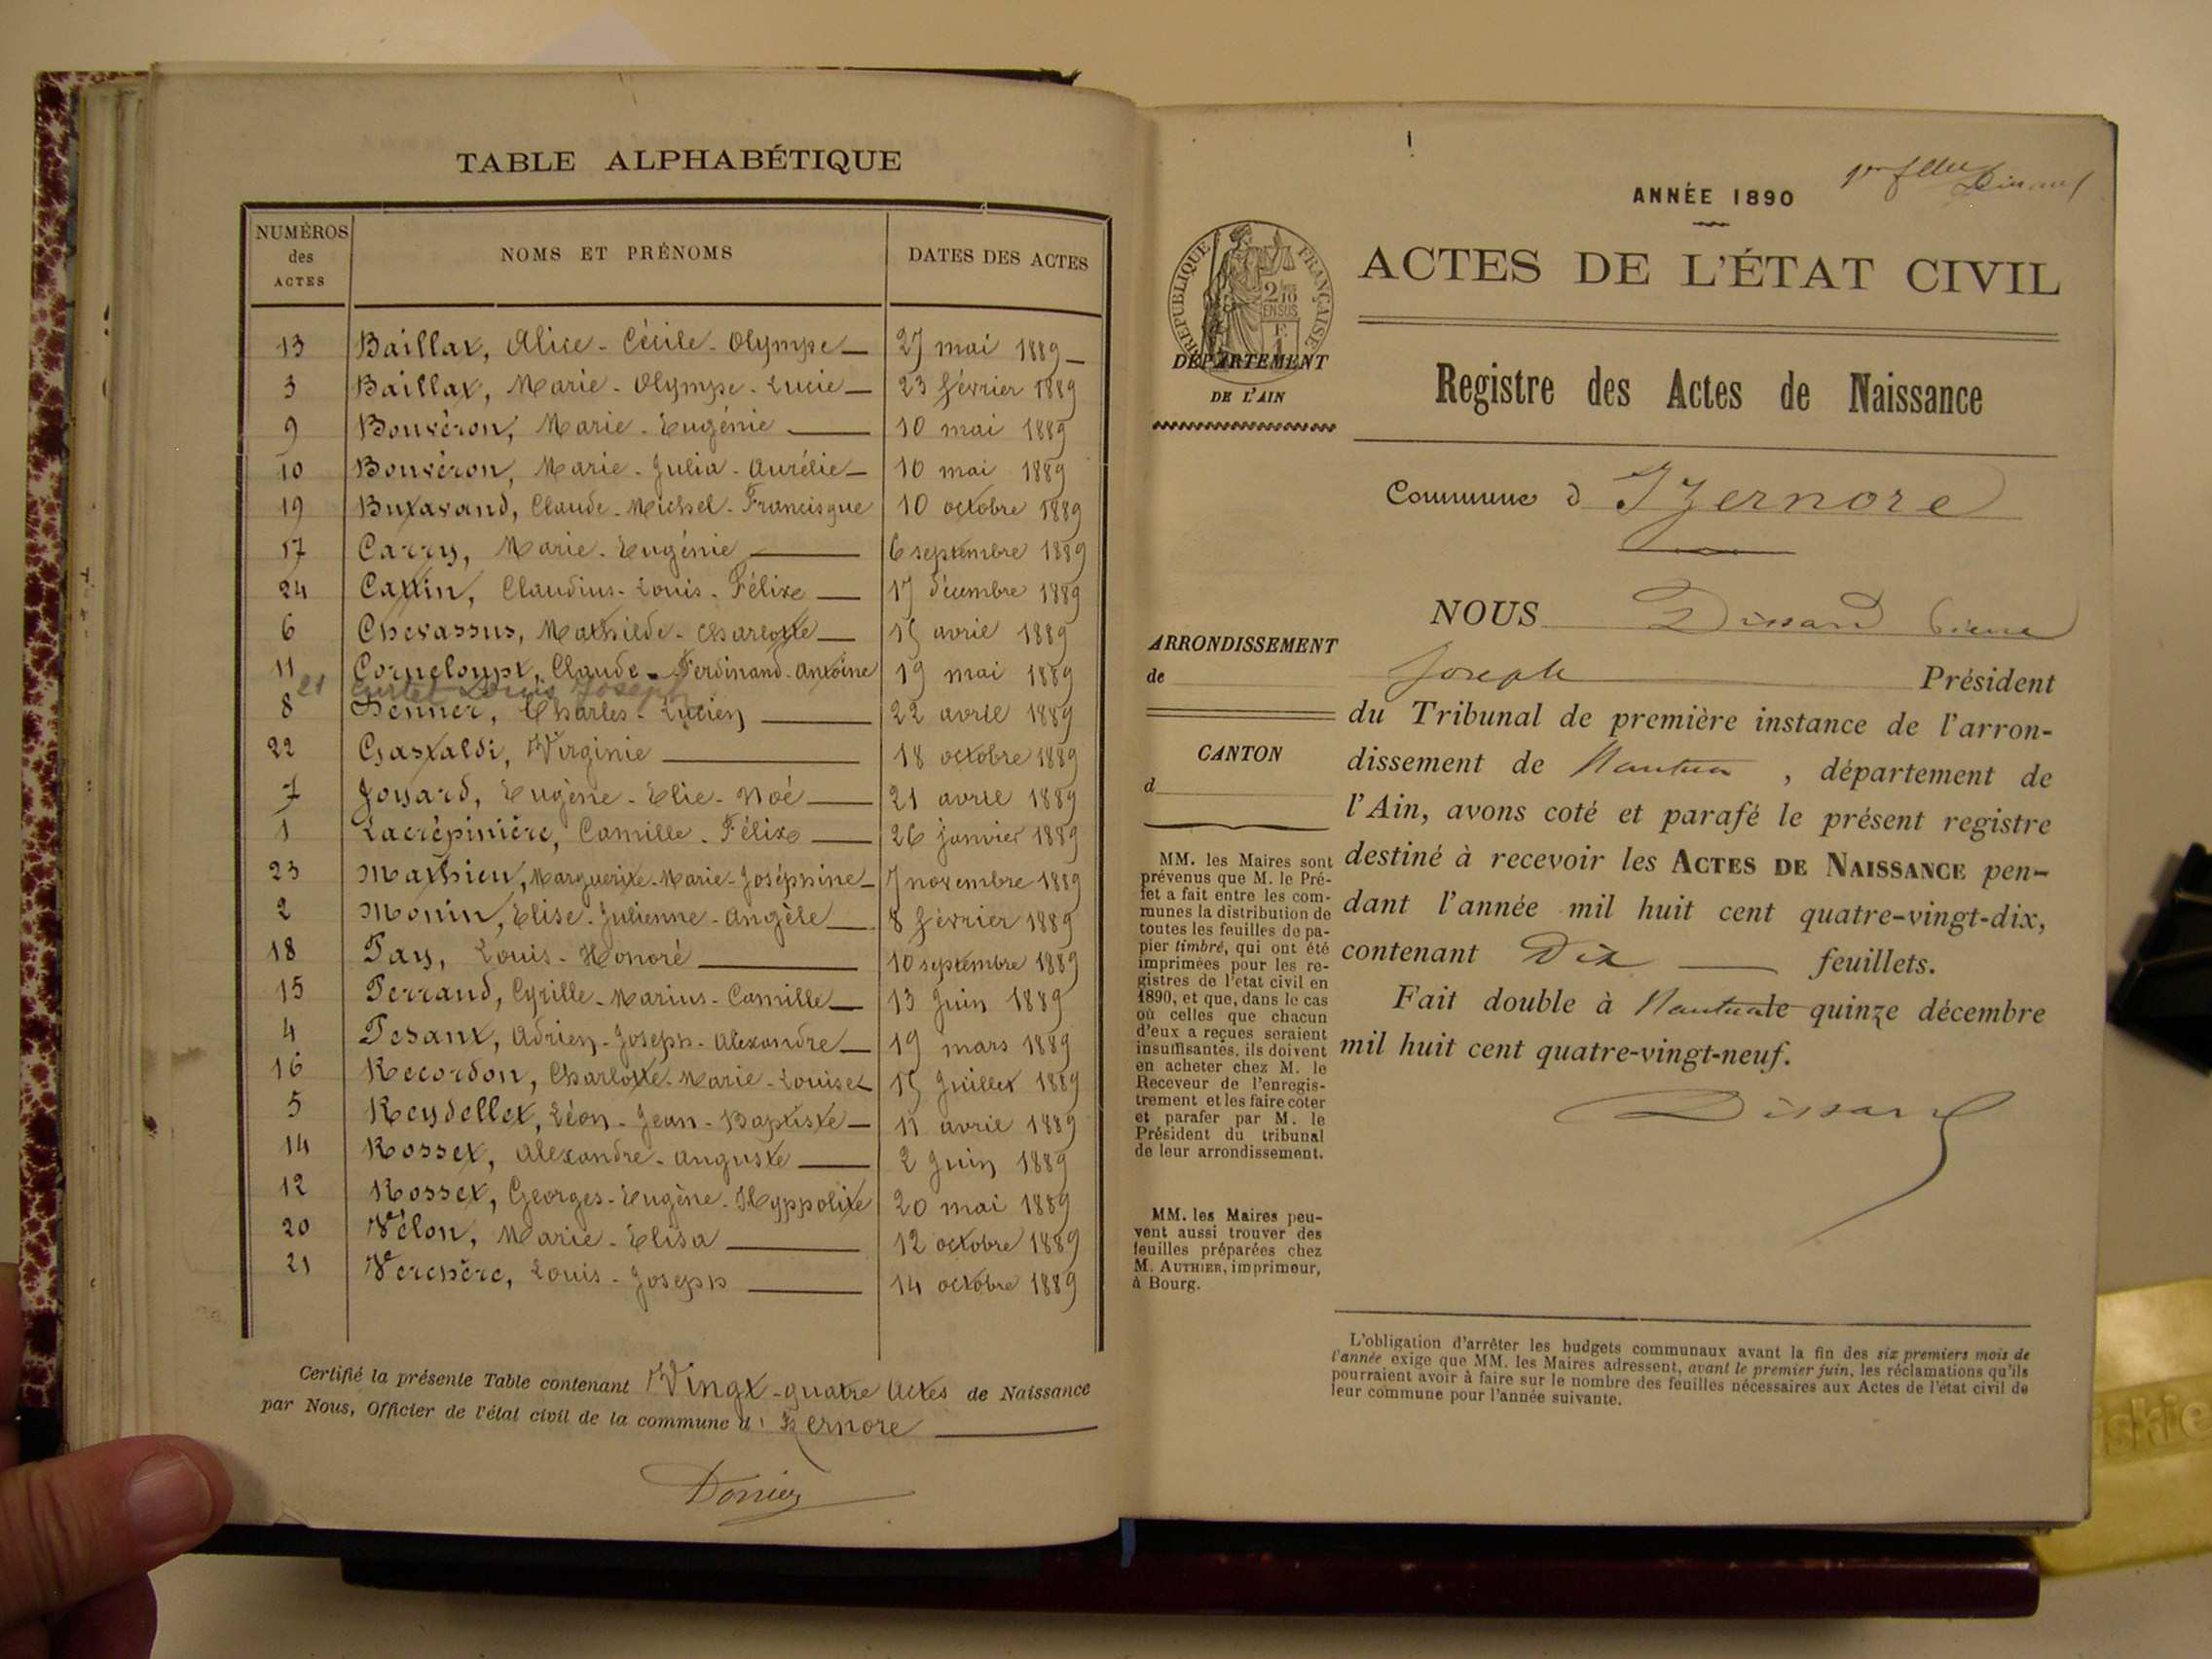 TABLE ALPHABÉTIQUE
NUMÉROS des ACTES NOMS ET PRÉNOMS DATES DES ACTES
13 Baillat, Alice - Cécile - Olympe — 27 mai 1889 —
3 Baillat, Marie - Olympe - Lucie — 23 février 1889
9 Bouvéron, Marie - Eugénie — 10 mai 1889
10 Bouvéron, Marie - Julia - Aurélie — 10 mai 1889
19 Butavand, Claude - Michel - Francisque 10 octobre 1889
17 Carry, Marie - Eugénie — 6 septembre 1889
24 Cattin, Claudius - Louis - Félix — 17 décembre 1889
6 Chevassus, Mathilde - Charlotte — 15 avril 1889
11 Corneloupt, Claude - Ferdinand - Antoine 19 mai 1889
21 Curtet Louis Joseph
8 Fenner, Charles - Lucien — 22 avril 1889
22 Gastaldi, Virginie — 18 octobre 1889
7 Joyard, Eugène - Elie - Noé — 21 avril 1889
1 Lacrépinière, Camille - Félix — 26 janvier 1889
23 Mathieu, Marguerite - Marie - Joséphine — 7 novembre 1889
2 Monin, Elise - Julienne - Angèle — 8 février 1889
18 Pay, Louis - Honoré — 10 septembre 1889
15 Perraud, Cyrille - Marius - Camille — 13 Juin 1889
4 Pesant, Adrien - Joseph - Alexandre — 19 mars 1889
16 Recordon, Charlotte - Marie - Louise 15 Juillet 1889
5 Reydellet, Léon - Jean - Baptiste — 11 avril 1889
14 Rosset, Alexandre - Auguste — 2 Juin 1889
12 Rosset, Georges - Eugène - Hyppolite 20 mai 1889
20 Vélon, Marie - Elisa — 12 octobre 1889
21 Verchère, Louis - Joseph — 14 octobre 1889
Certifié la présente Table contenant Vingt-quatre Actes de Naissance
par Nous, Officier de l'état civil de la commune d'Izernore
1
ANNÉE 1890
ACTES DE L'ÉTAT CIVIL
RÉPUBLIQUE FRANÇAISE
DÉPARTEMENT
DE L'AIN
Registre des Actes de Naissance
Commune d Izernore
NOUS Dissard Pierre
Joseph Président
du Tribunal de première instance de l'arron-
dissement de Nantua, département de
l'Ain, avons coté et parafé le présent registre
destiné à recevoir les ACTES DE NAISSANCE pen-
dant l'année mil huit cent quatre-vingt-dix,
contenant Dix — feuillets.
Fait double à Nantua le quinze décembre
mil huit cent quatre-vingt-neuf.
Dissard
ARRONDISSEMENT
de
CANTON
d
MM. les Maires sont
prévenus que M. le Pré-
fet a fait entre les com-
munes la distribution de
toutes les feuilles de pa-
pier timbré, qui ont été
imprimées pour les re-
gistres de l'état civil en
1890, et que, dans le cas
où celles que chacun
d'eux a reçues seraient
insuffisantes, ils doivent
en acheter chez M. le
Receveur de l'enregis-
trement et les faire coter
et parafer par M. le
Président du tribunal
de leur arrondissement.
MM. les Maires peu-
vent aussi trouver des
feuilles préparées chez
M. AUTHIER, imprimeur,
à Bourg.
L'obligation d'arrêter les budgets communaux avant la fin des six premiers mois de
l'année exige que MM. les Maires adressent, avant le premier juin, les réclamations qu'ils
pourraient avoir à faire sur le nombre des feuilles nécessaires aux Actes de l'état civil de
leur commune pour l'année suivante.